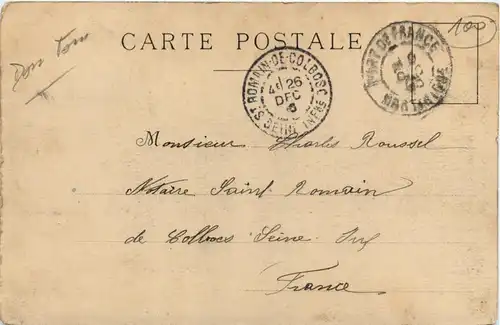 100
CARTE POSTALE
Dom Tom
ST ROMAIN-DE-COLBOSC
26
DEC
SEINE INFRE
FORT DE FRANCE
MARTINIQUE
Monsieur Charles Roussel
Notaire Saint Romain
de Colbocs Seine Inf
France